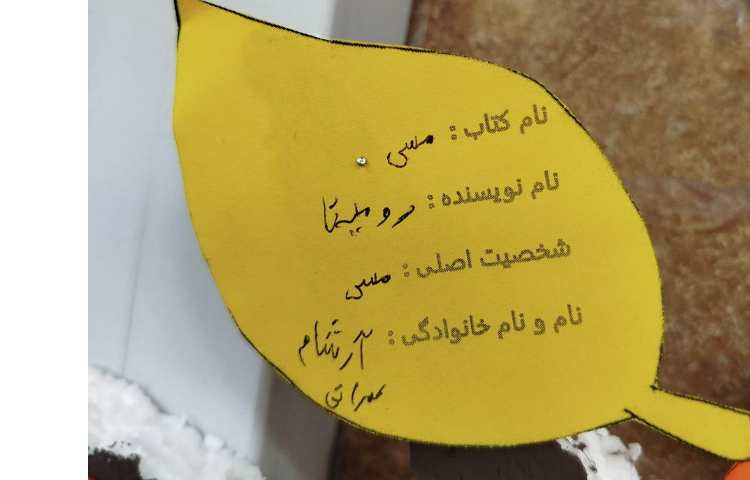 نام کتاب : مسی
نام نویسنده : رومینا
شخصیت اصلی : مسی
نام و نام خانوادگی : آرشام